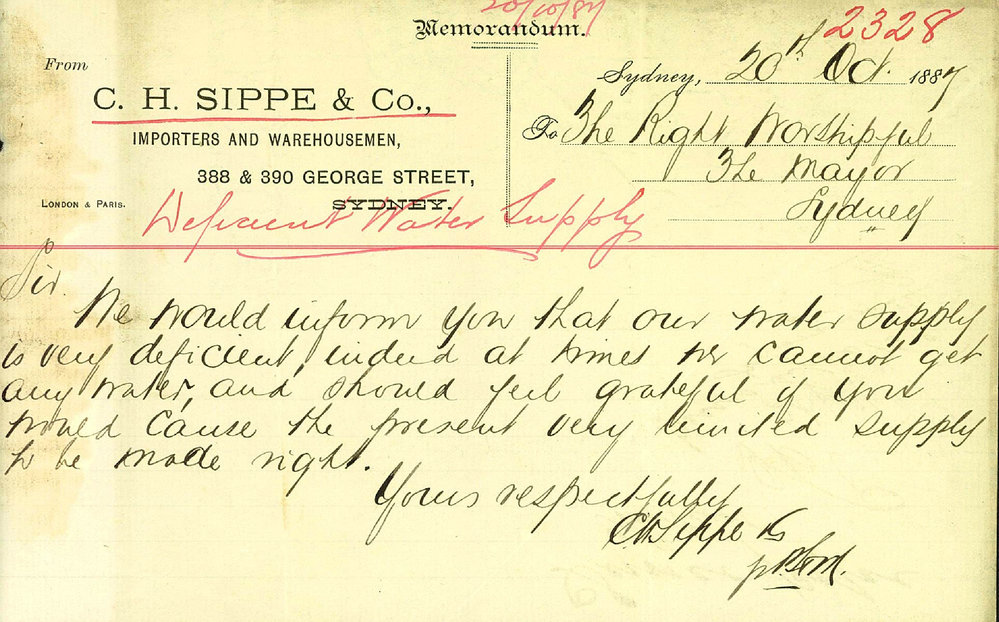 20/10/87
Memorandum.
2328
From
C. H. SIPPE & Co.,
IMPORTERS AND WAREHOUSEMEN,
388 & 390 GEORGE STREET,
LONDON & PARIS.
SYDNEY.
Sydney, 20th Oct. 1887
To The Right Worshipful
The Mayor
Sydney
Deficient Water Supply
Sir.
We would inform you that our water supply
is very deficient, indeed at times we cannot get
any water, and should feel grateful if you
would cause the present very limited supply
to be made right.
Yours respectfully
C H Sippe & Co